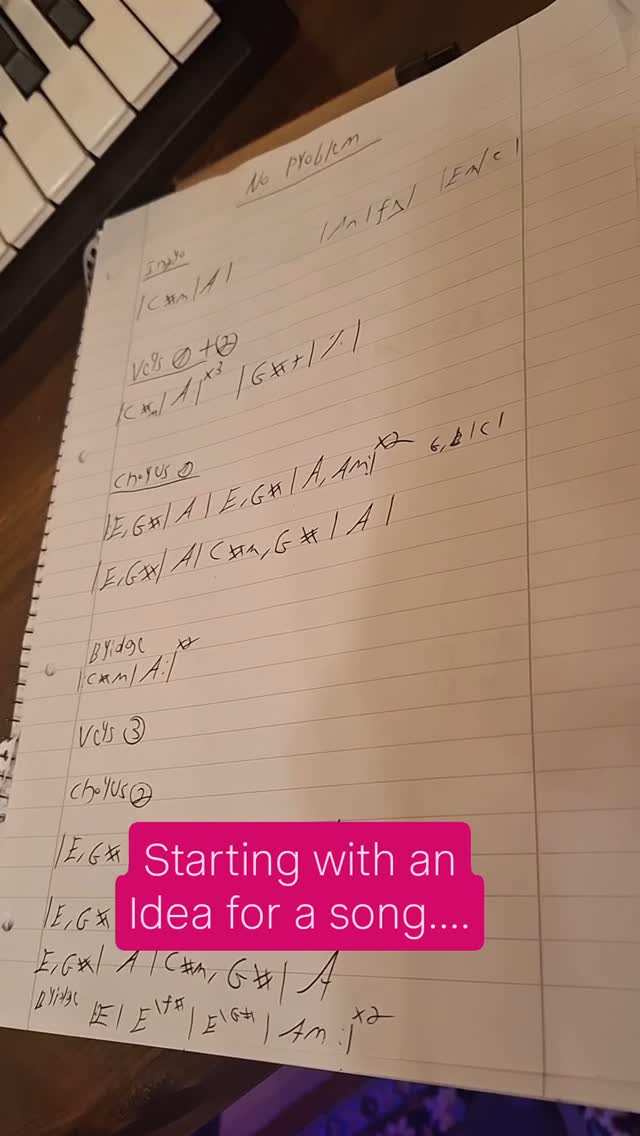 No problem
|Am|F△| |Em|C|
Intro
|C#m|A|
Vers ① + ②
|C#m|A:|x3 |G#+|٪|
Chorus ①
|E,G#|A|E,G#|A,Am:|x2 G,B|C|
|E,G#|A|C#m,G#|A|
Bridge
|C#m|A:|x2
Vers ③
Chorus ②
|E,G#
Starting with an
|E,G#
Idea for a song....
E,G#|A|C#m,G#|A
Bridge |E|E\F#|E\G#|Am:|x2